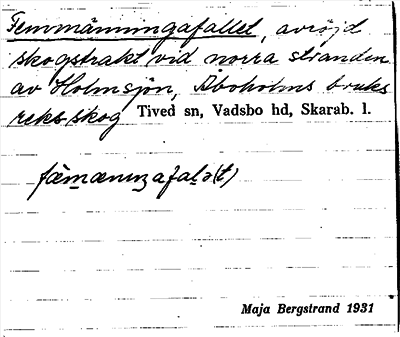 Femmänningafallet, avröjd
skogstrakt vid norra stranden
av Holmsjön, Åboholms bruks
rekr. skog Tived sn, Vadsbo hd, Skarab. l.
fæ̀mæniŋafalə(t)
Maja Bergstrand 1931